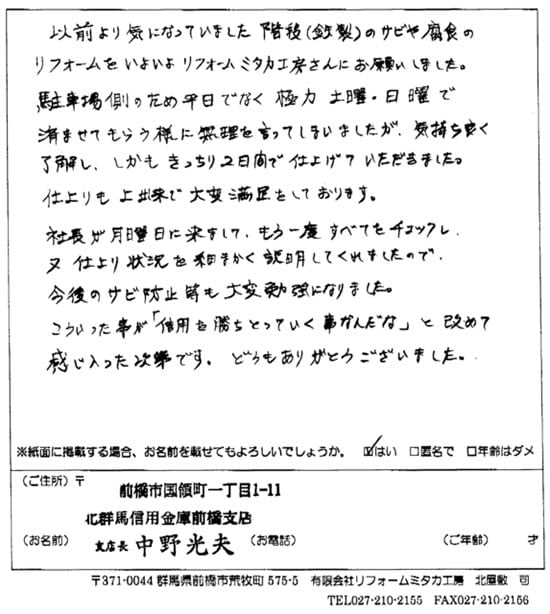 以前より気になっていました階段(鉄製)のサビや腐食の
リフォームをいよいよリフォームミタカ工房さんにお願いしました。
駐車場側のため平日でなく極力土曜・日曜で
済ませてもらう様に無理を言ってしまいましたが、気持ち良く
了解し、しかもきっちり2日間で仕上げていただきました。
仕上りも上出来で大変満足をしております。
社長が月曜日に来まして、もう一度すべてをチェックし、
又仕上り状況を細まかく説明してくれましたので、
今後のサビ防止等も大変勉強になりました。
こういった事が「信用を勝ちとっていく事なんだな」と改めて
感じ入った次第です。どうもありがとうございました。
※紙面に掲載する場合、お名前を載せてもよろしいでしょうか。 ☑はい □匿名で □年齢はダメ
(ご住所)〒
前橋市国領町一丁目1-11
北群馬信用金庫前橋支店
(お名前) 支店長 中野光夫 (お電話) (ご年齢) 才
〒371-0044 群馬県前橋市荒牧町575-5 有限会社リフォームミタカ工房 北屋敷 司
TEL027-210-2155 FAX027-210-2156